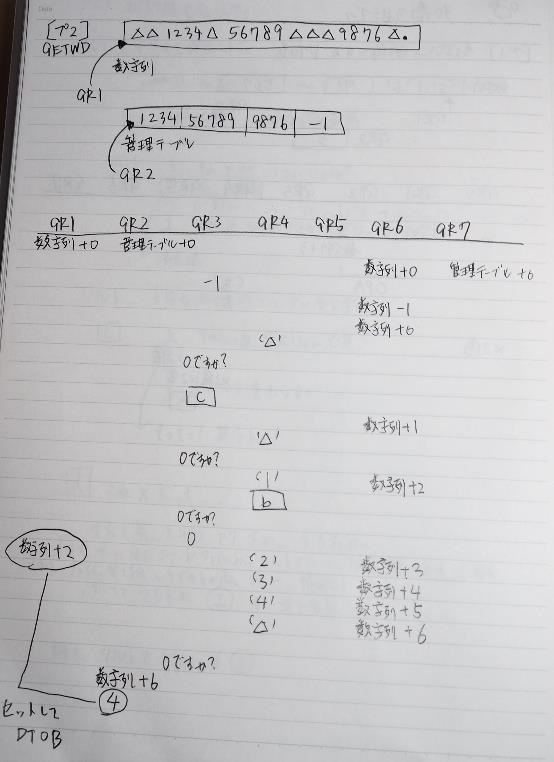 [プ2]
GETWD
△△1234△ 56789 △△△9876 △.
数字列
GR1
1234 56789 9876 -1
管理テーブル
GR2
GR1 GR2 GR3 GR4 GR5 GR6 GR7
数字列+0 管理テーブル+0
数字列+0 管理テーブル+0
-1
数字列-1
数字列+0
'△'
0ですか?
C
数字列+1
'△'
0ですか?
'1' 数字列+2
b
0ですか?
0
数字列+2
'2' 数字列+3
'3' 数字列+4
'4' 数字列+5
'△' 数字列+6
0ですか?
数字列+6
④
セットして
DTOB